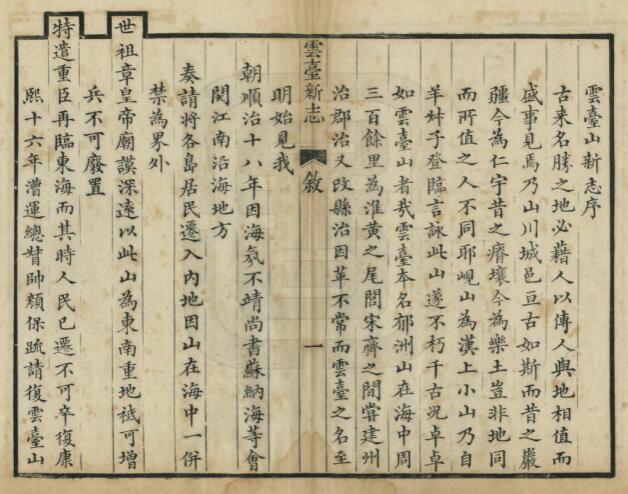 雲臺山新志序
古来名勝之地必藉人以傳人與地相值而
盛事見焉乃山川城邑亘古如斯而昔之巖
疆今為仁宇昔之瘠壤今為樂土豈非地同
而所值之人不同耶峴山為漢上小山乃自
羊叔子登臨言詠此山遂不朽千古况卓卓
如雲臺山者㢤雲臺本名郁洲山在海中周
三百餘里為淮黃之尾閭宋齊之間嘗建州
治郡治又改縣治因革不常而雲臺之名至
雲臺新志
敘
一
明始見我
朝順治十八年因海氛不靖尚書蘇納海等會
閱江南沿海地方
奏請將各島居民遷入內地因山在海中一併
禁為界外
世祖章皇帝廟謨深逺以此山為東南重地祗可增
兵不可廢置
特遣重臣再臨東海而其時人民已遷不可卒復康
熙十六年漕運總督帥顏保疏請復雲臺山